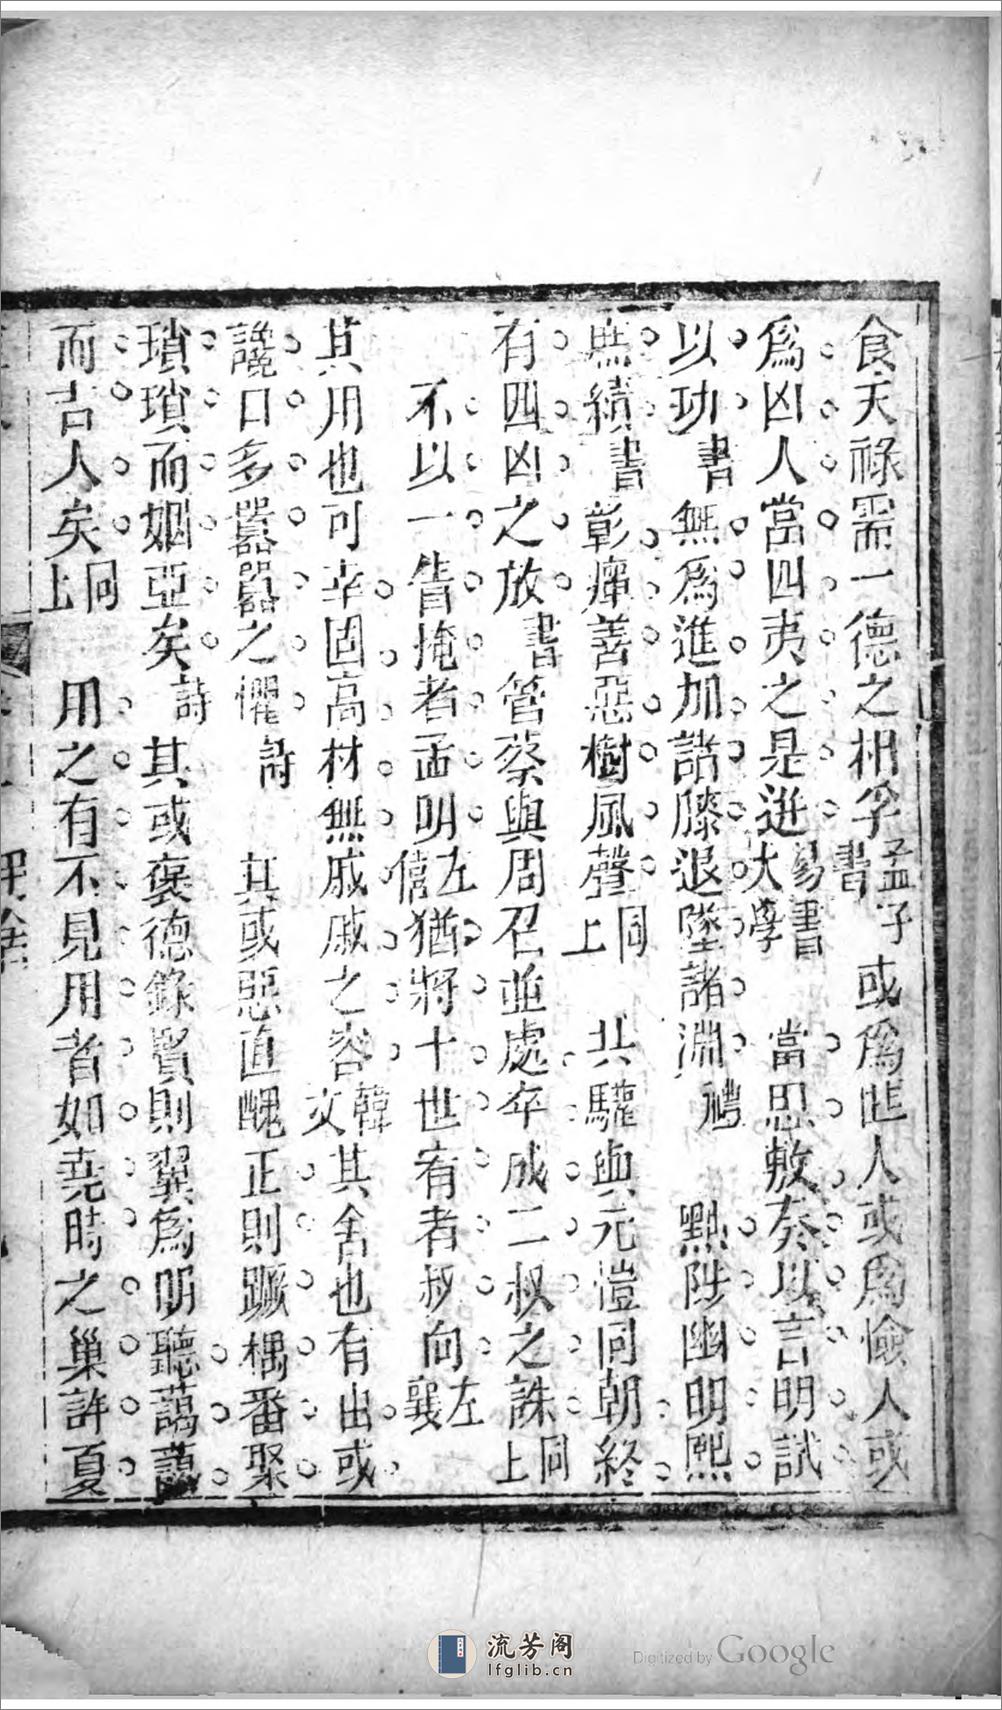 食天祿需一德之相孚孟子書或爲匪人或爲憸人或
爲凶人當四夷之是逬易書大學當思敷奏以言明試
以功書無爲進加諸膝退墜諸淵禮黜陟幽明熙
庶績書彰癉善惡樹風聲同上共驩與元愷同朝終
有四凶之放書管蔡與周召並處卒成二叔之誅同上
不以一眚掩者孟明左僖猶將十世宥者叔向左襄
其用也可幸固高材無戚戚之容韓文其舍也有出或
讒口多囂囂之懼詩其或惡直醜正則蹶楀番聚
瑣瑣而姻亞矣詩其或褒德錄賢則巽爲明聽藹藹
而吉人矣同上用之有不見用者如堯時之巢許夏
流芳阁
lfglib.cn
Digitized by Google